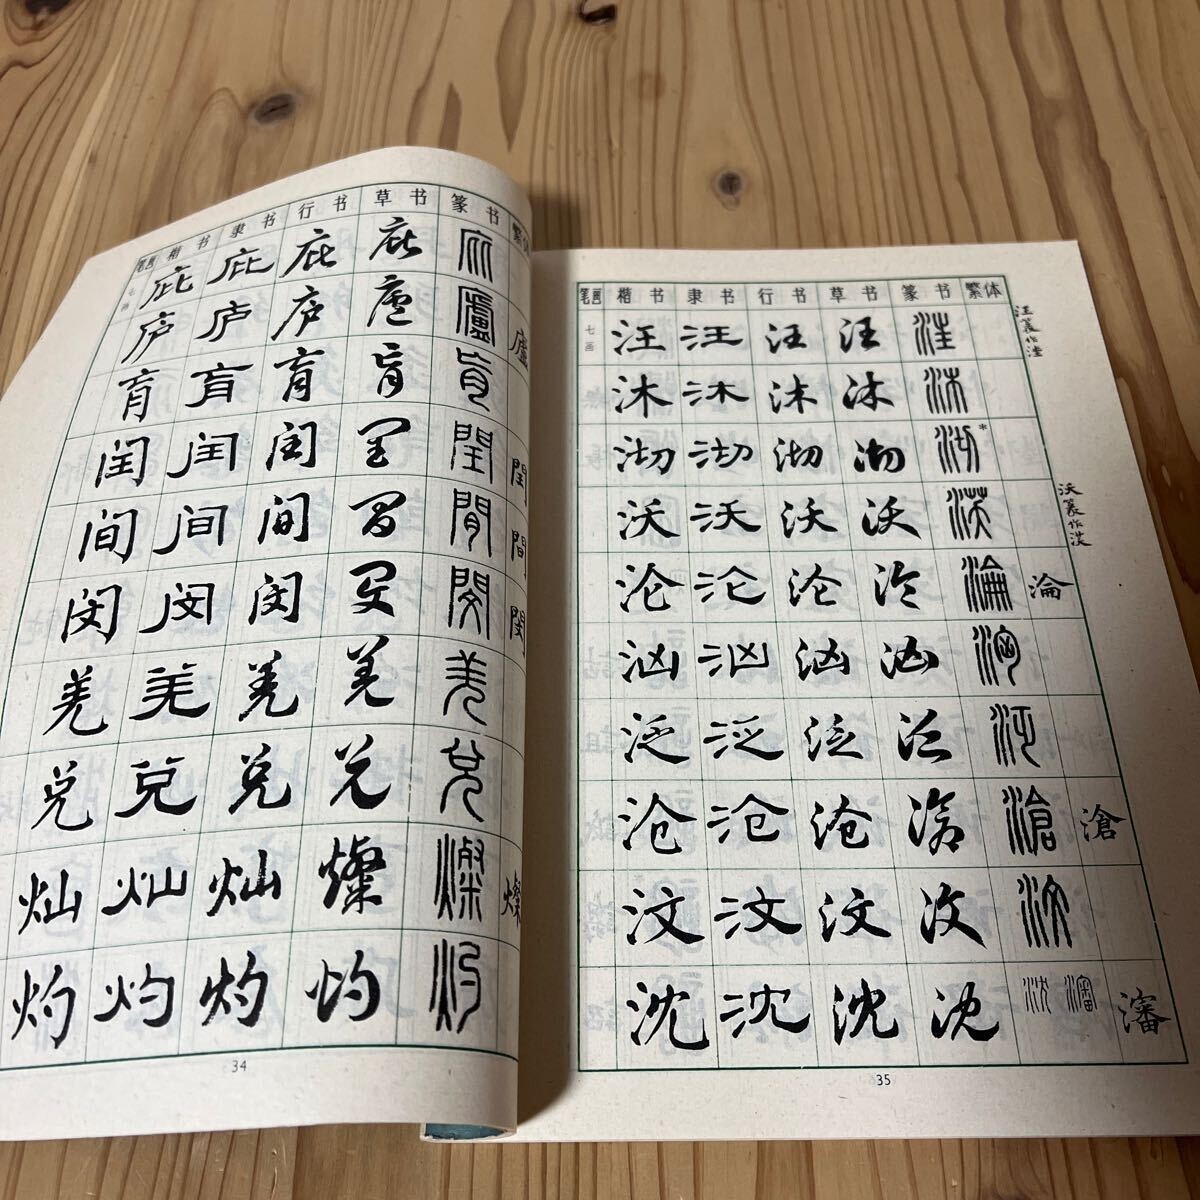 笔画 楷书 隶书 行书 草书 篆书 繁体
七画 庇 庇 庇 庇 庇
庐 庐 庐 廬 廬 廬
肓 肓 肓 肓 肓
闰 闰 闰 闰 閏 閏
间 间 间 间 間 間
闵 闵 闵 闵 閔 閔
羌 羌 羌 羌 羌
兑 兑 兑 兑 兑
灿 灿 灿 燦 燦 燦
灼 灼 灼 灼 灼
34
笔画 楷书 隶书 行书 草书 篆书 繁体
七画 汪 汪 汪 汪 汪
汪篆作洼
沐 沐 沐 沐 沐
沏 沏 沏 沏 沏*
沃 沃 沃 沃 沃
沃篆作渶
沦 沦 沦 沦 淪 淪
汹 汹 汹 汹 洶
泛 泛 泛 泛 泛
沧 沧 沧 沧 滄 滄
汶 汶 汶 汶 汶
沈 沈 沈 沈 沈 瀋 瀋
35